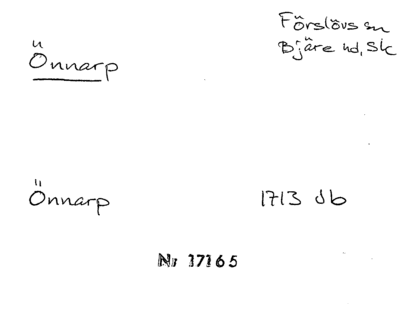 Förslövs sn
Bjäre hd, Sk
Önnarp
Önnarp 1713 db
Nr 17165